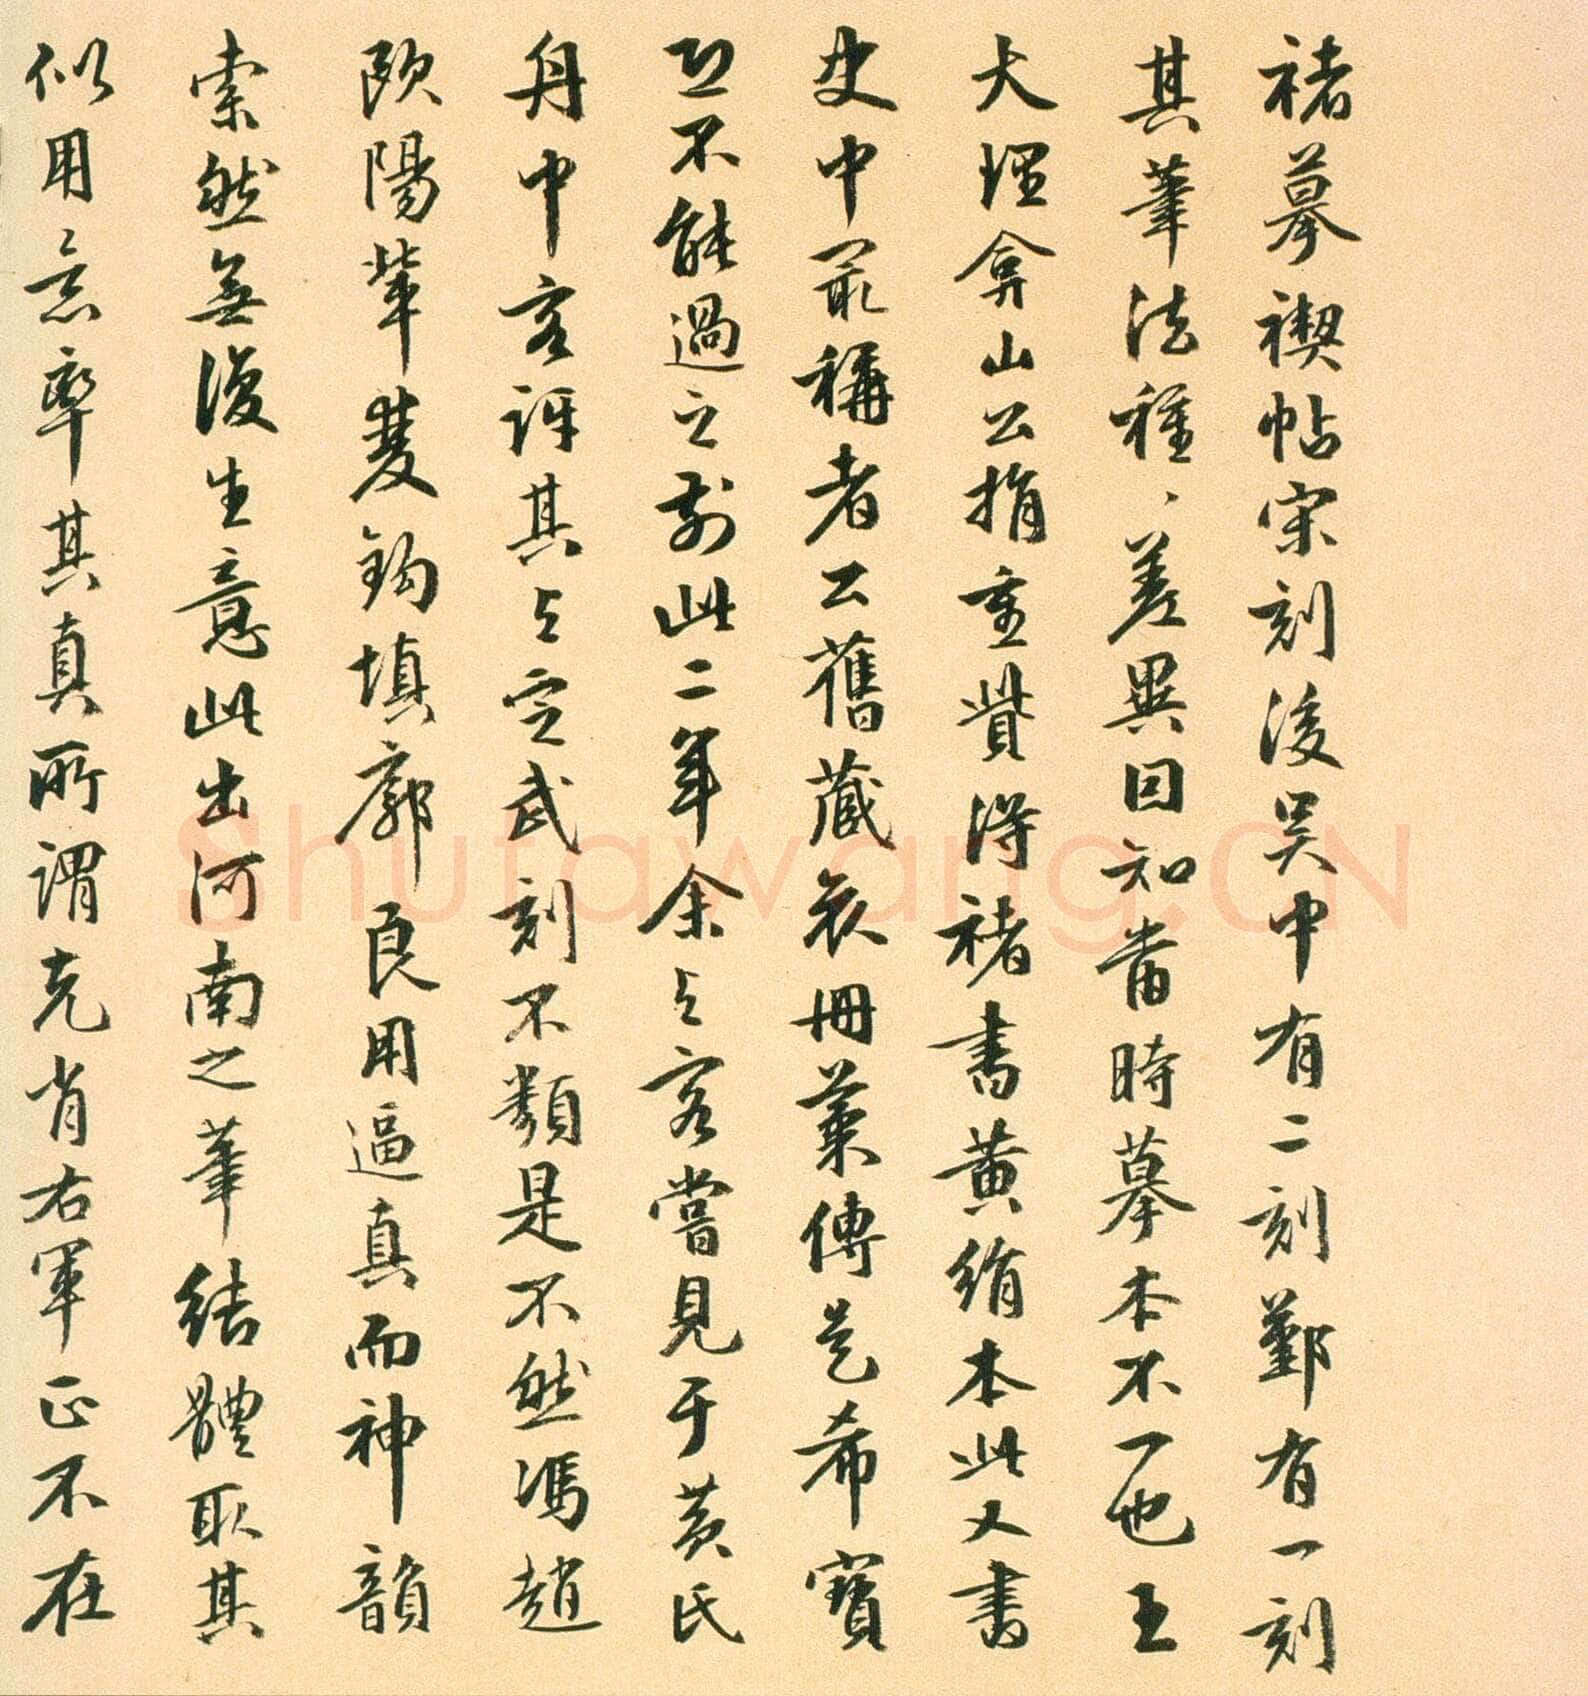 褚摹禊帖宋刻後吴中有二刻鄞有一刻
其筆法種、差異因知当時摹本不一也王
大理弇山公捐重貲得褚書黄絹本此又書
史中最称者公舊蔵衣冊葉傳是希寳
不能過之刻此二年余與客嘗見于黄氏
舟中客訝其與定武刻不類是不然馮趙
欧陽輩雙鈎填廓良用逼真而神韻
索然無復生意此出河南之筆結體取其
似用意率其真所謂克肖右軍正不在
Shufawang.CN